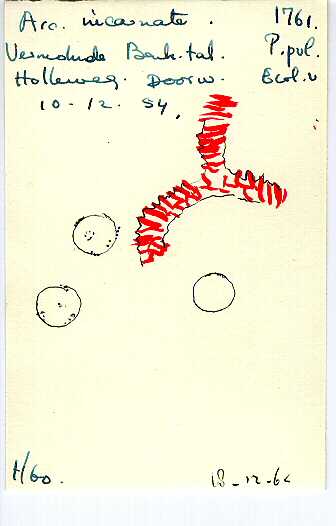 Arc. incarnata. 1761.
Vermolmde Beuk. tal. P. pul.
Holleweg. Doorw. Ecol. v
10-12. 54.
H/60. 18-12-64